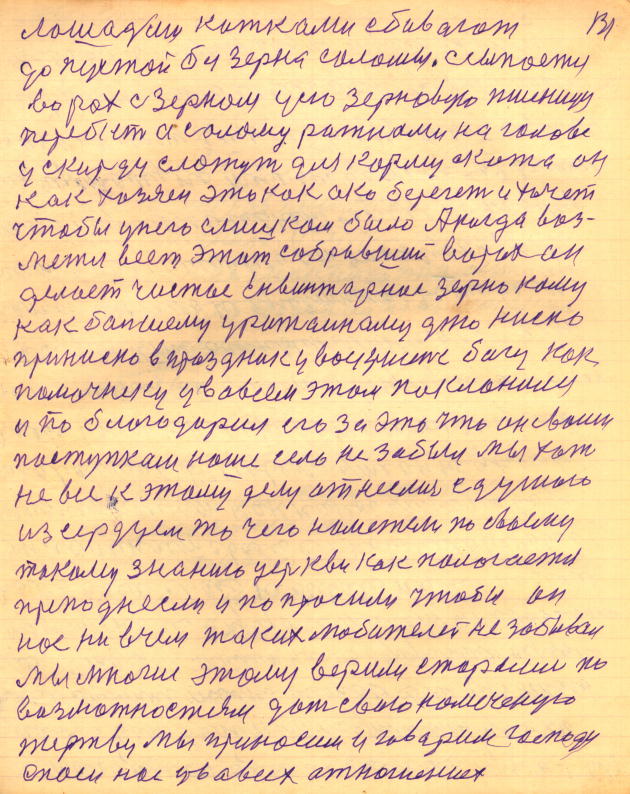 лошадьми катками сбивают 131
до пустой без зерна соломы. Ссыпается
ворох с зерном усю зерновую пшеницу
перебьет а солому ражнами на голове
у скирду сложут для корму скота он
как хозяен это как око берегет и хочет
чтобы унего слишком было А когда воз-
метил веет этот собравший ворох он
делает чистое енвинтарное зерно кому
как бапшему урожаиному ужо ниско
принисно в праздник увоскресение богу как
помочнику увовсем этом поклонилися
и по благодарил его за это что он своим
поступкам наше село не забыли мы хоть
не все к этому делу отнеслись с душою
из сердцем то чего наметели по своему
такому знанию церкви как пологается
преподнесли и попросили чтобы он
нас ни вчем таких любителей не забывал
мы многие этому верили старались по
возможностям дать свою намеченую
жертву мы приносим и говорим господу
спаси нас увовсех отношениях